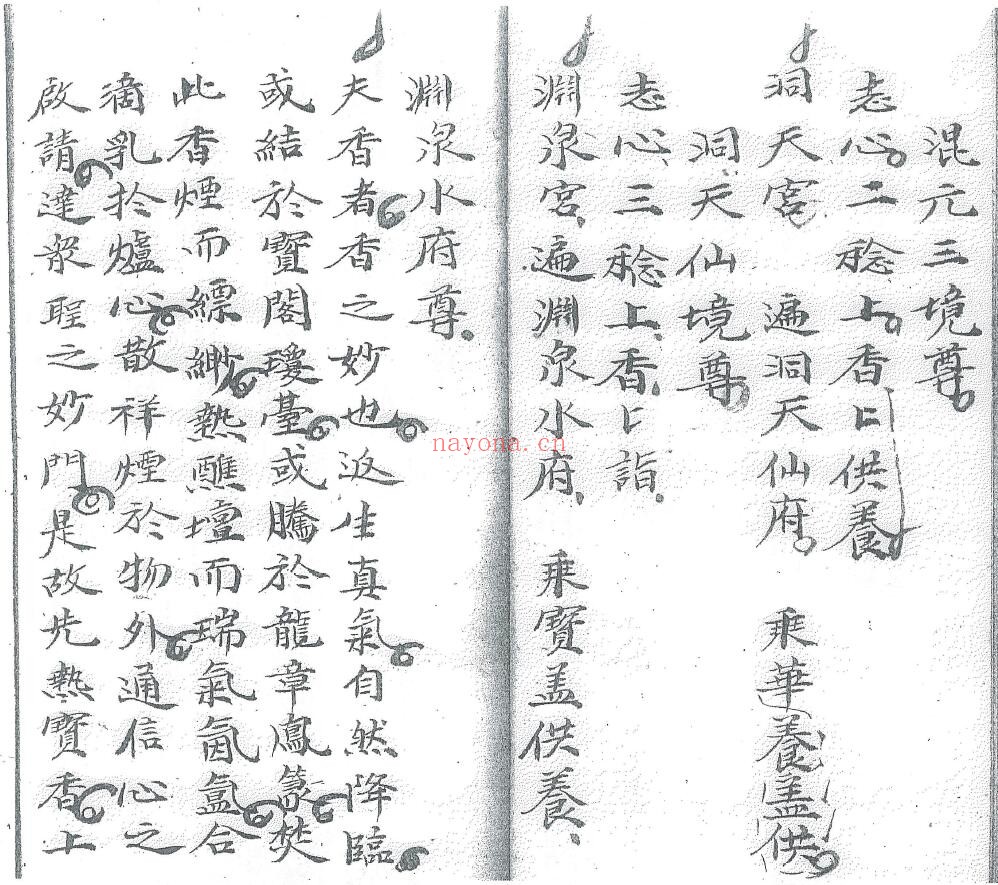 混元三境尊
志心二稔上香㠯供養
洞天宮 遍洞天仙府 乗華養盖供
洞天仙境尊
志心三稔上香㠯詣
渊泉宮遍渊泉水府 乗寳盖供養
渊泉水府尊
夫香者香之妙也返生真氣自然降臨
或結於寳閣瓊臺或騰於龍章鳳篆焚
此香煙而縹緲熱醮壇而瑞氣氤氳合
滴乳扵爐心散祥煙於物外通信心之
啟請達衆聖之妙門是故先熱寳香上
nayona.cn